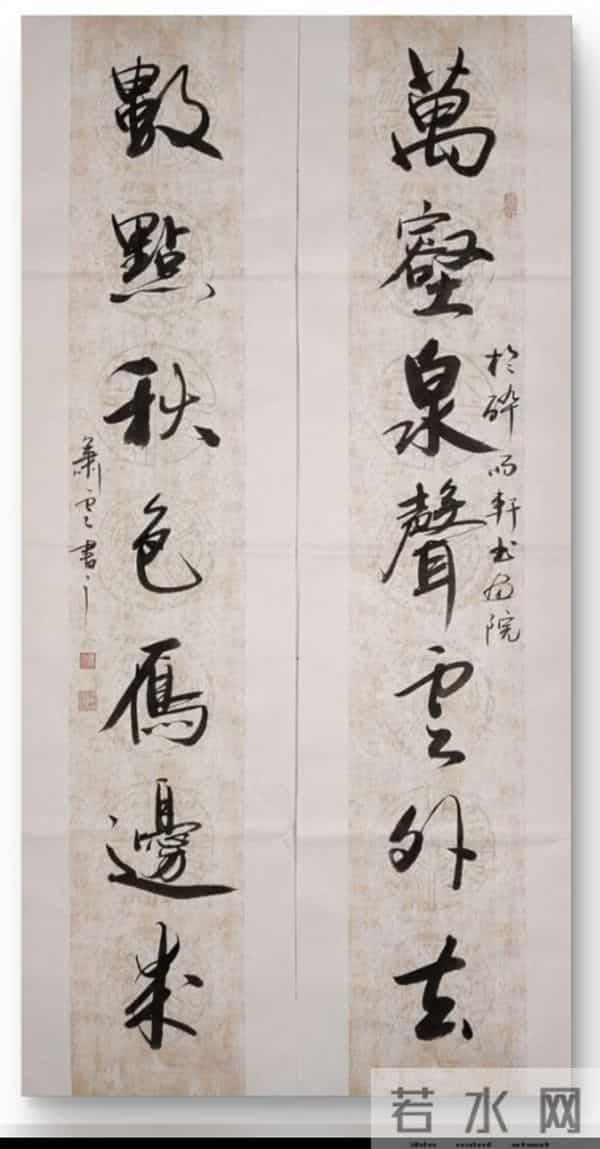 萬壑泉聲雲外去
於醉雨軒书畫院
數點秋色雁邊來
蕭雲書
若水网